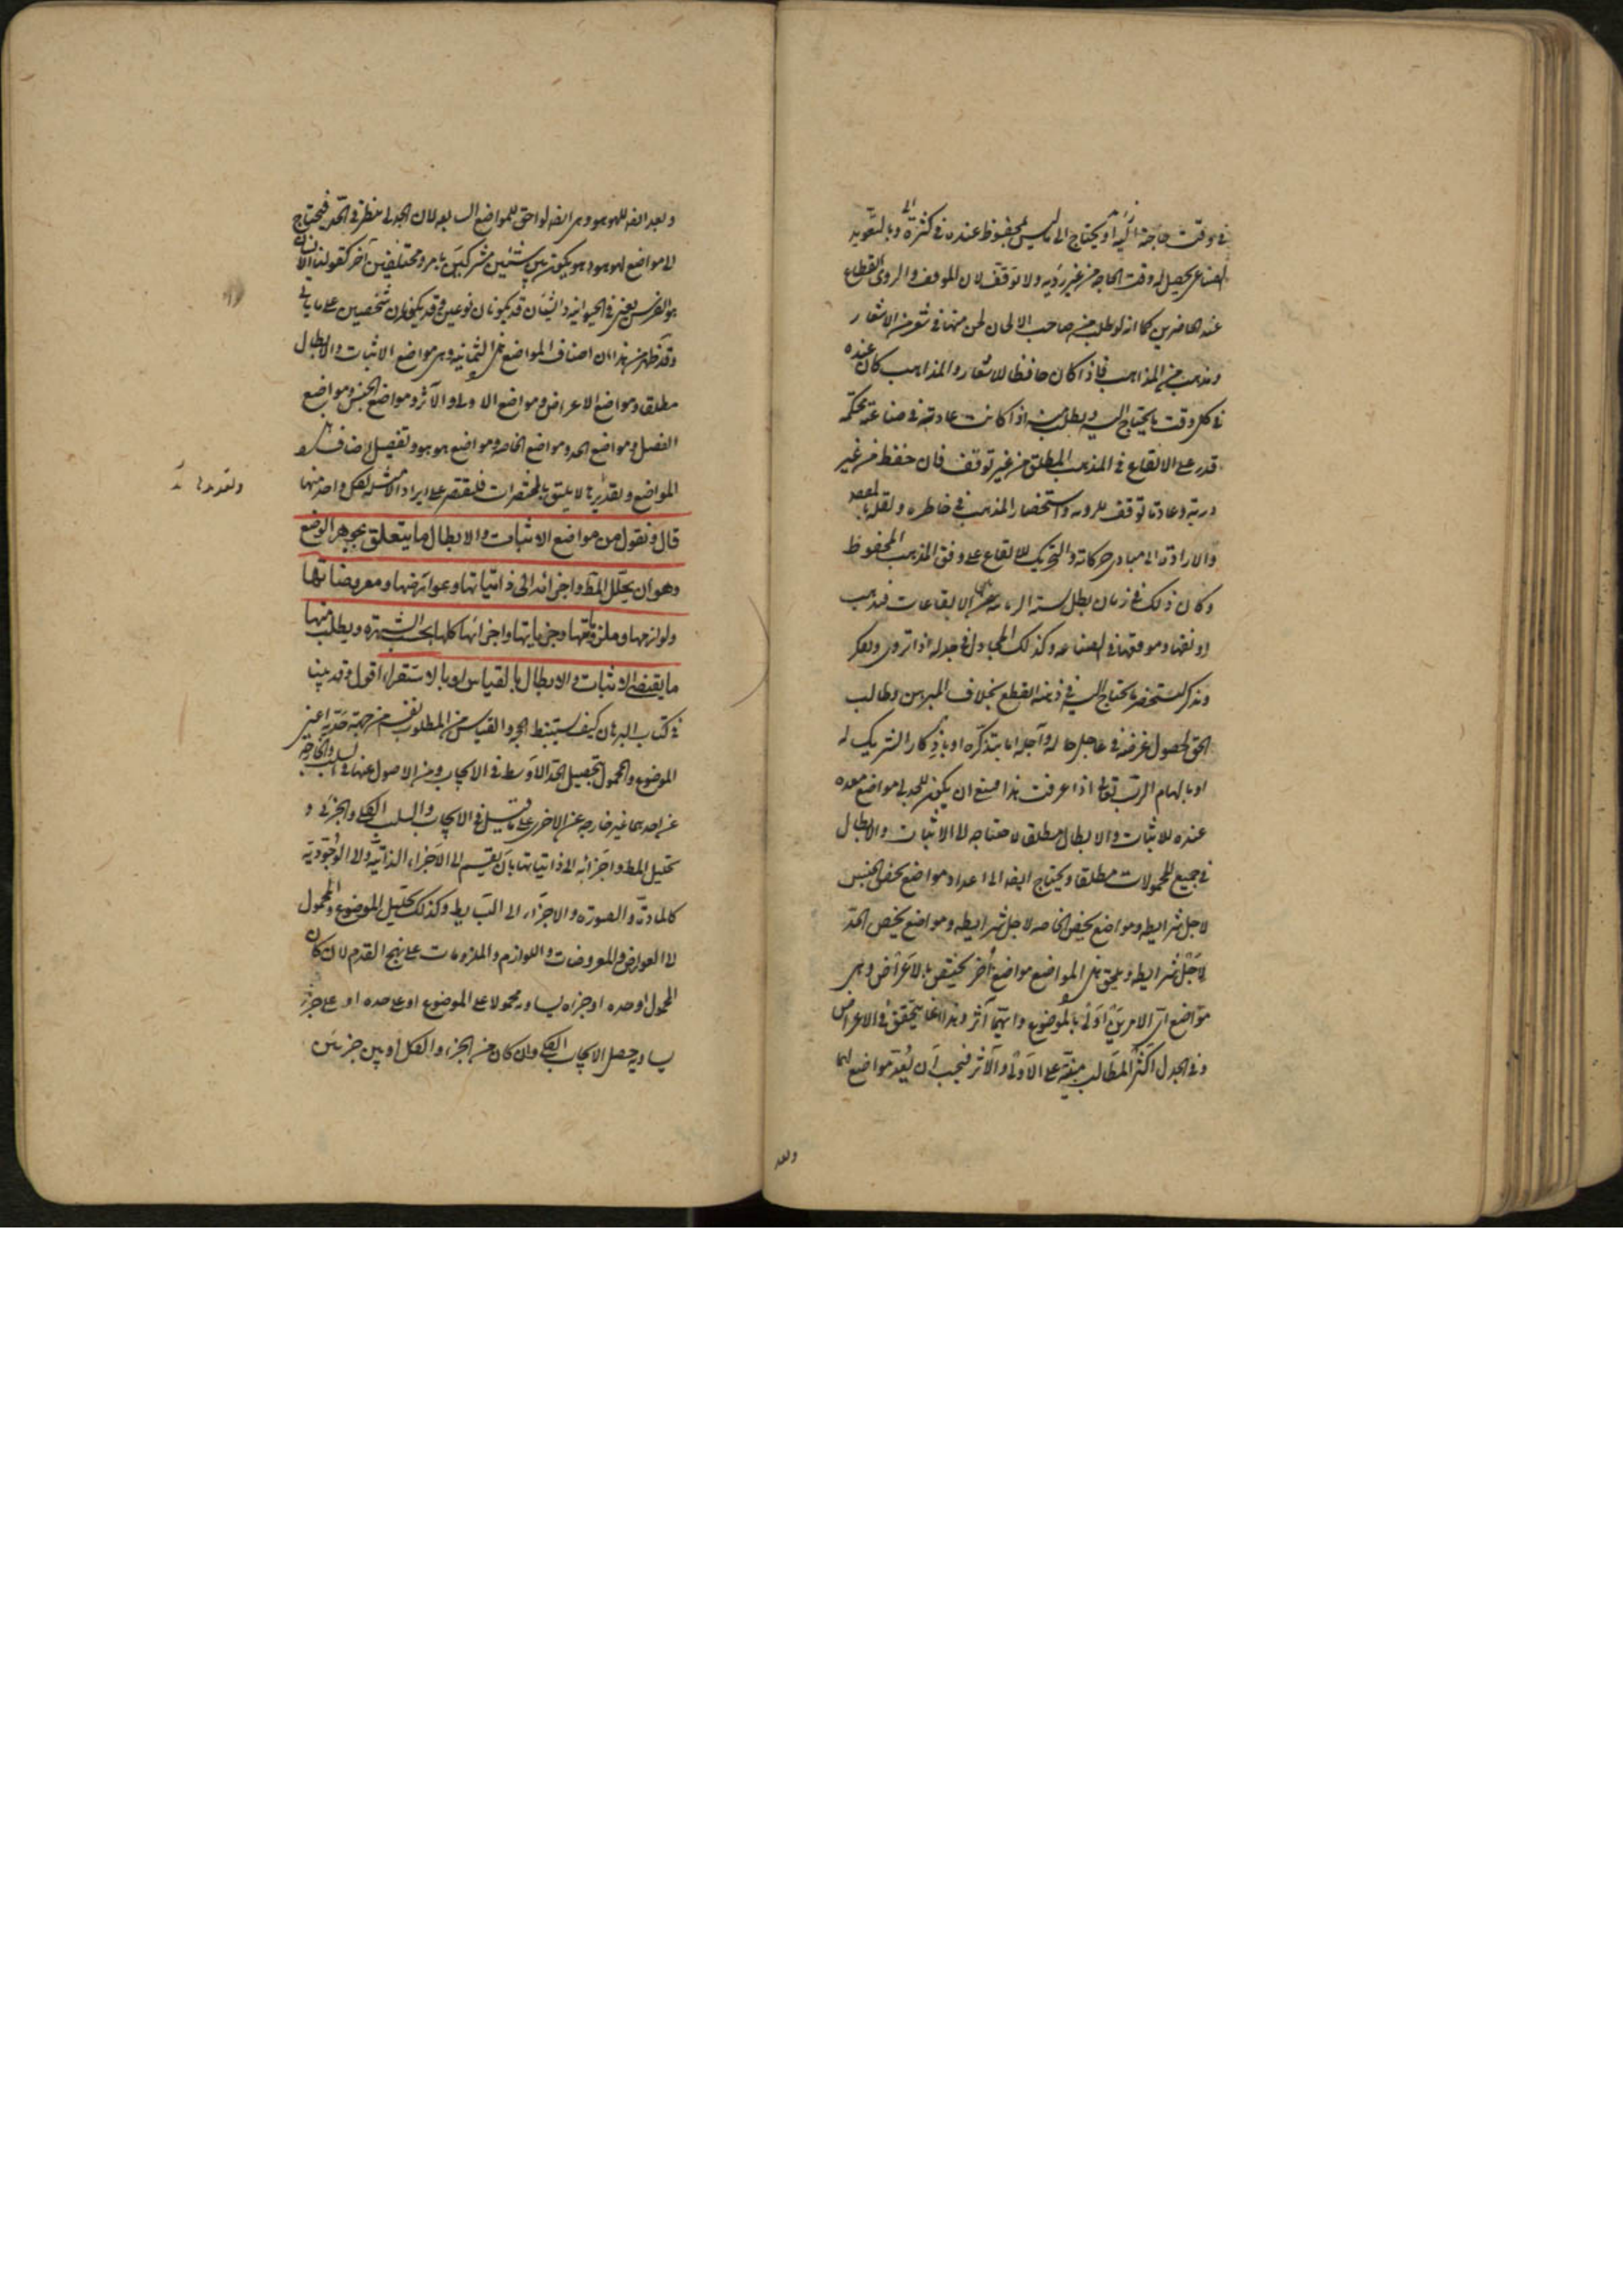 في وقت حاجة اليه او يحتاج الى ما ليس بمحفوظ عنده في كثرة وبالتعويد
الصناعي يحصل له وقت الحاجة من غير روية ولا توقف لان الموقف والروى انقطاع
عند الحاضرين كما انه لو طلب من صاحب الالحان لحن منها في شعر من الاشعار
ومذهب من المذاهب فاذا كان حافظا للاشعار والمذاهب كان عنده
في كل وقت ما يحتاج اليه ويطلب منه اذا كانت عادته في صناعته محكمة
قدر على الايقاع في المذهب المطلق من غير توقف فان حفظ من غير
دربة وعادة توقف للروية واستحضار المذهب في خاطره ونقله بالقصد
والارادة الى مبادى حركاته والتحريك للايقاع على وفق المذهب المحفوظ
وكان ذلك في زمان يطل الايقاعات فيذهب
رونقها وموقعها في الصناعة وكذلك المجادل في جدله اذا تروى وتفكر
وتذكر ليستحضر ما يحتاج اليه في ذهنه انقطع بخلاف المبرهن وطالب
الحق لحصول غرضه في عاجل حاله وآجله اما بتذكره او باذكار الشريك له
او بالهام الرب تعالى اذا عرفت هذا فينبغي ان يكون للجدلي مواضع معدة
عنده للاثبات والابطال مطلقا لاحتياجه الى الاثبات والابطال
في جميع المحمولات مطلقا ويحتاج ايضا الى اعداد مواضع تخص الجنس
لاجل شرايطه ومواضع يخص الخاصة لاجل شرايطه ومواضع يخص الحد
لاجل شرايطه ويلحق هذه المواضع مواضع أخر يختص بالاعراض وهي
مواضع ان اى الامرين اولى بالموضوع وايهما آثر وهذا انما يتحقق في الاعراض
وفي الجدل اكثر المطالب مبنية على الاولى والآثر فيجب ان يعد مواضع لهما
وبعد
وبعد ايضا للهوهو وهي ايضا لواحق للمواضع السابعة لان الجدلي ينظر في الحد فيحتاج
الى مواضع الهوهو والهوهو يكون بين شيئين مشتركين بامر ومختلفين بآخر كقولنا الانسان
هو الفرس يعنى في الحيوانية والشيئان قد يكونان نوعين وقد يكونان شخصين على ما يأتي
وقد ظهر من هذا ان اصناف المواضع هى الثمانية وهى مواضع الاثبات والابطال
مطلقا ومواضع الاعراض ومواضع الاولى والآثر ومواضع الجنس ومواضع
الفصل ومواضع الحد ومواضع الخاصة ومواضع هوهو وتفصيل اصناف هذه
المواضع وتقديرها لا يليق بالمختصرات فلنقتصر على ايراد الامثلة لكل واحد منها
قال ونقول من مواضع الاثبات والابطال ما يتعلق بجوهر الوضع
وهو ان يحلل المط واجزائه الى ذاتياتها وعوارضها ومعروضاتها
ولوازمها وملزوماتها وجزيياتها واجزائها كلها بحسب الشهرة ويطلب منها
ما يقتضى الاثبات والابطال بالقياس او بالاستقراء اقول وقد بينا
في كتاب البرهان كيف يستنبط الجزء القياس من المطلوب نفسه من جهة حديه اعنى
الموضوع والمحمول لتحصيل الحد الاوسط في الايجاب ومن الاصول عنها في السلب والخارجة
عن احدهما غير خارجة عن الاخرى على ما قيل في الايجاب والسلب الكلى والجزئى و
تحليل المط واجزائه الى ذاتياتها بان يقسم الى الاجزاء الذاتية والى الوجودية
كالمادة والصورة والاجزاء الى البسايط وكذلك تحليل الموضوع والمحمول
الى العوارض والمعروضات واللوازم والملزومات على نهج القدم لان كان
المحمول او حده او جزاه يساويه محمولا على الموضوع او على حده او على جزء
يساويه حصل الايجاب الكلى وان كان من الجزء والكل او بين جزئين